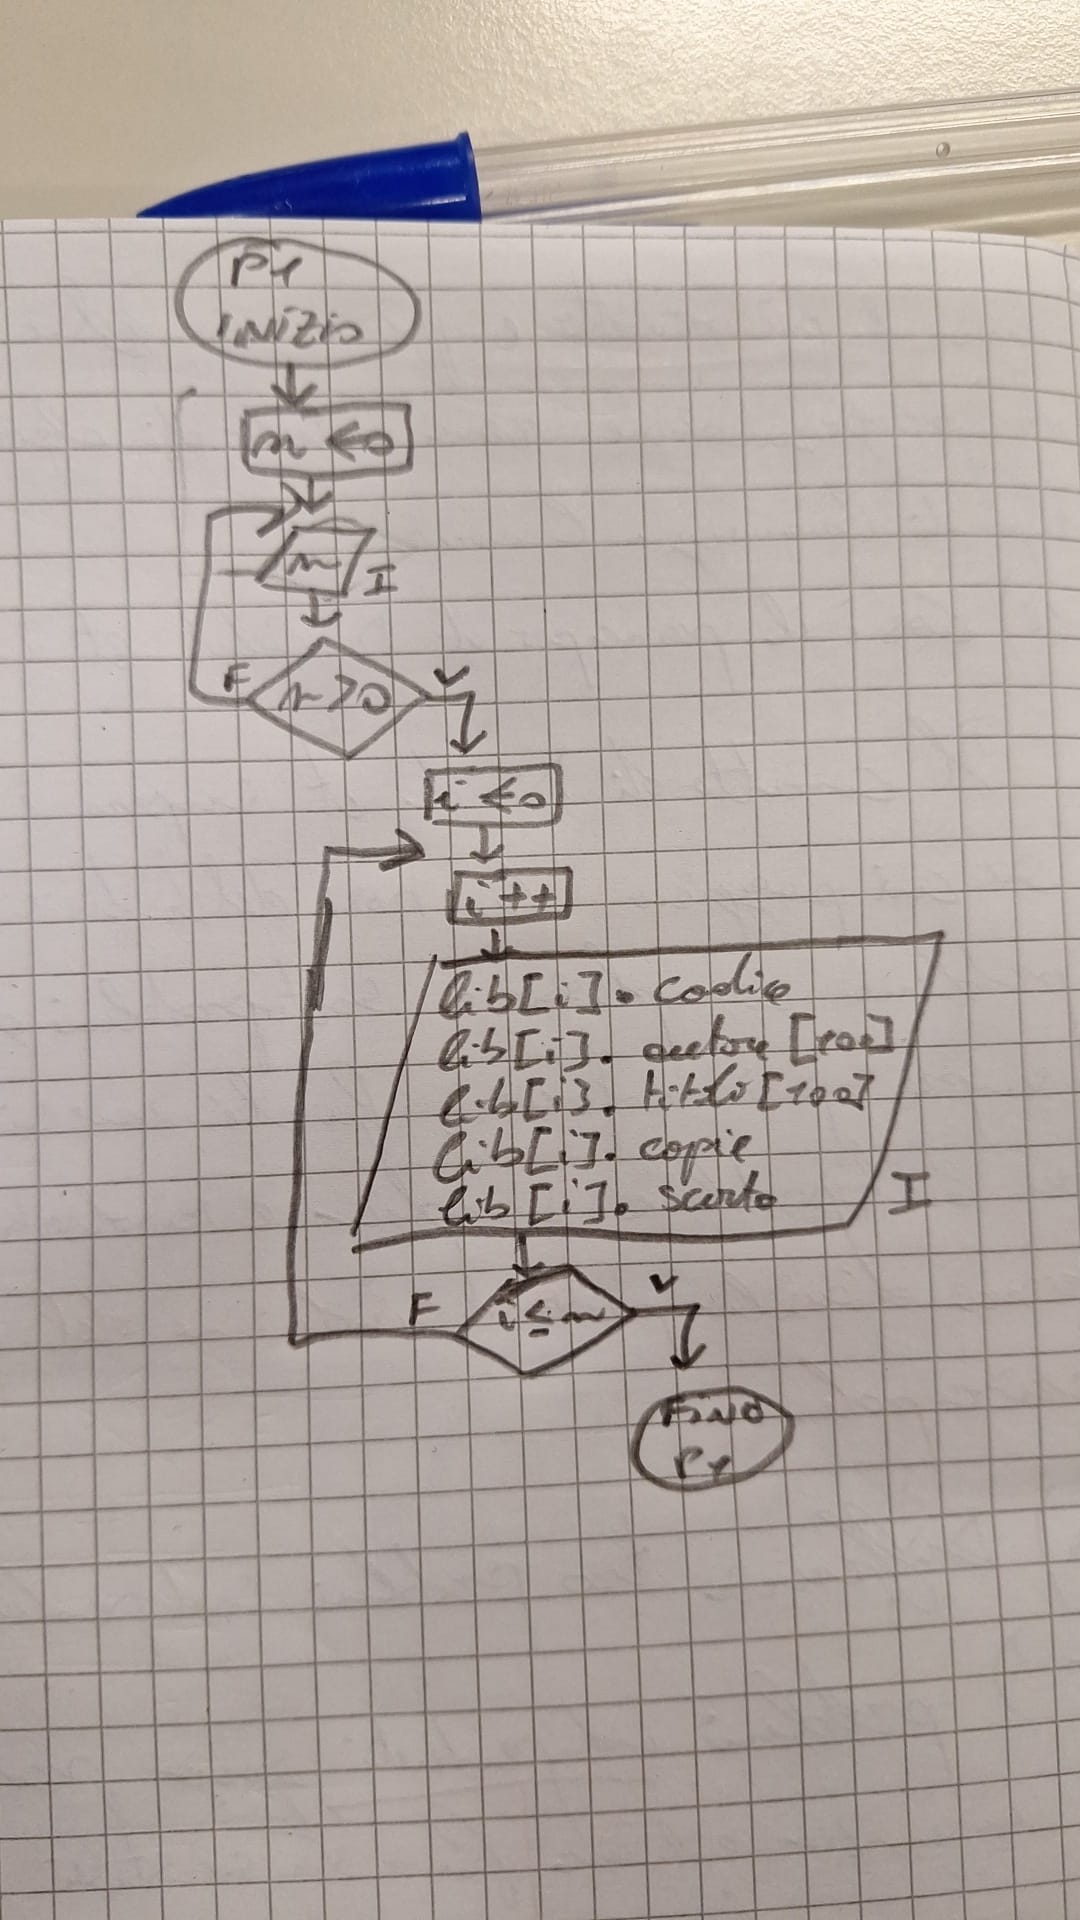 P1
INIZIO
n ← 0
n
I
F
n > 0
V
i ← 0
i++
lib[i]. codice
lib[i]. autore [100]
lib[i]. titolo [100]
lib[i]. copie
lib[i]. sconto
I
F
i ≤ n
V
FINE
P1